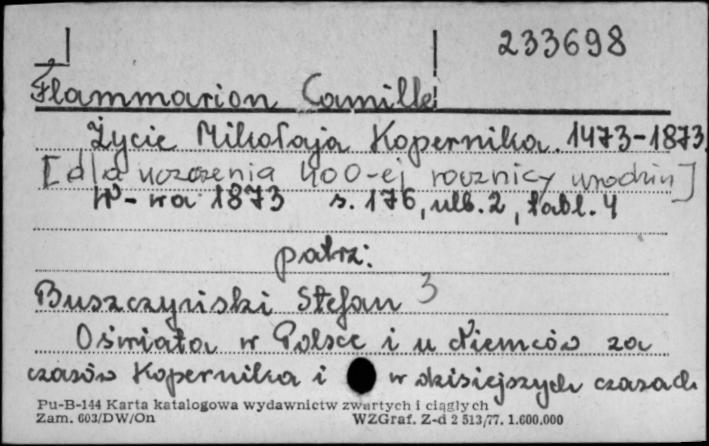 233698
Flammarion Camille
Życie Mikołaja Kopernika. 1473-1873.
[dla uczczenia 400-ej rocznicy urodzin]
W-wa 1873 s. 176, ulb. 2, tabl. 4
patrz:
Buszczyński Stefan 3
Oświata w Polsce i u Niemców za
czasów Kopernika i w dzisiejszych czasach
Pu-B-144 Karta katalogowa wydawnictw zwartych i ciągłych
Zam. 603/DW/On WZGraf. Z-d 2 513/77. 1.600.000